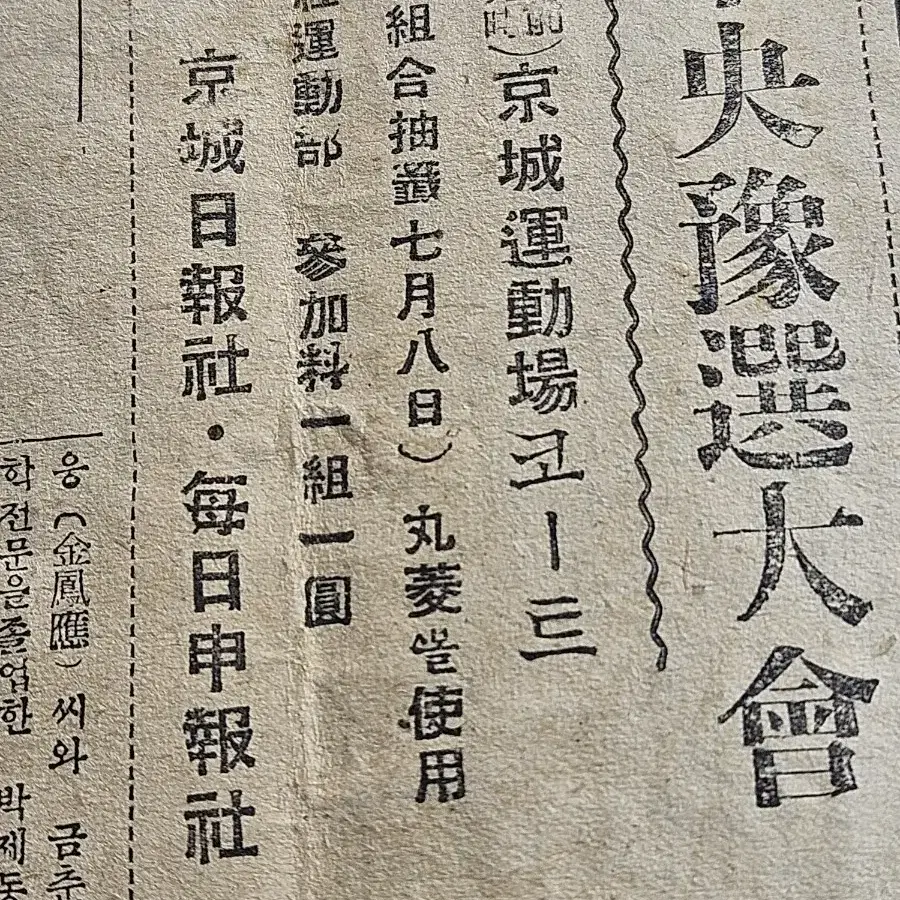 央豫選大會
)京城運動場코ー트
組合抽籤七月八日) 丸菱ᄲᅩᆯ使用
運動部 參加料一組一圓
京城日報社・每日申報社
웅(金鳳應)씨와 금춘
학전문을졸업한 박제동